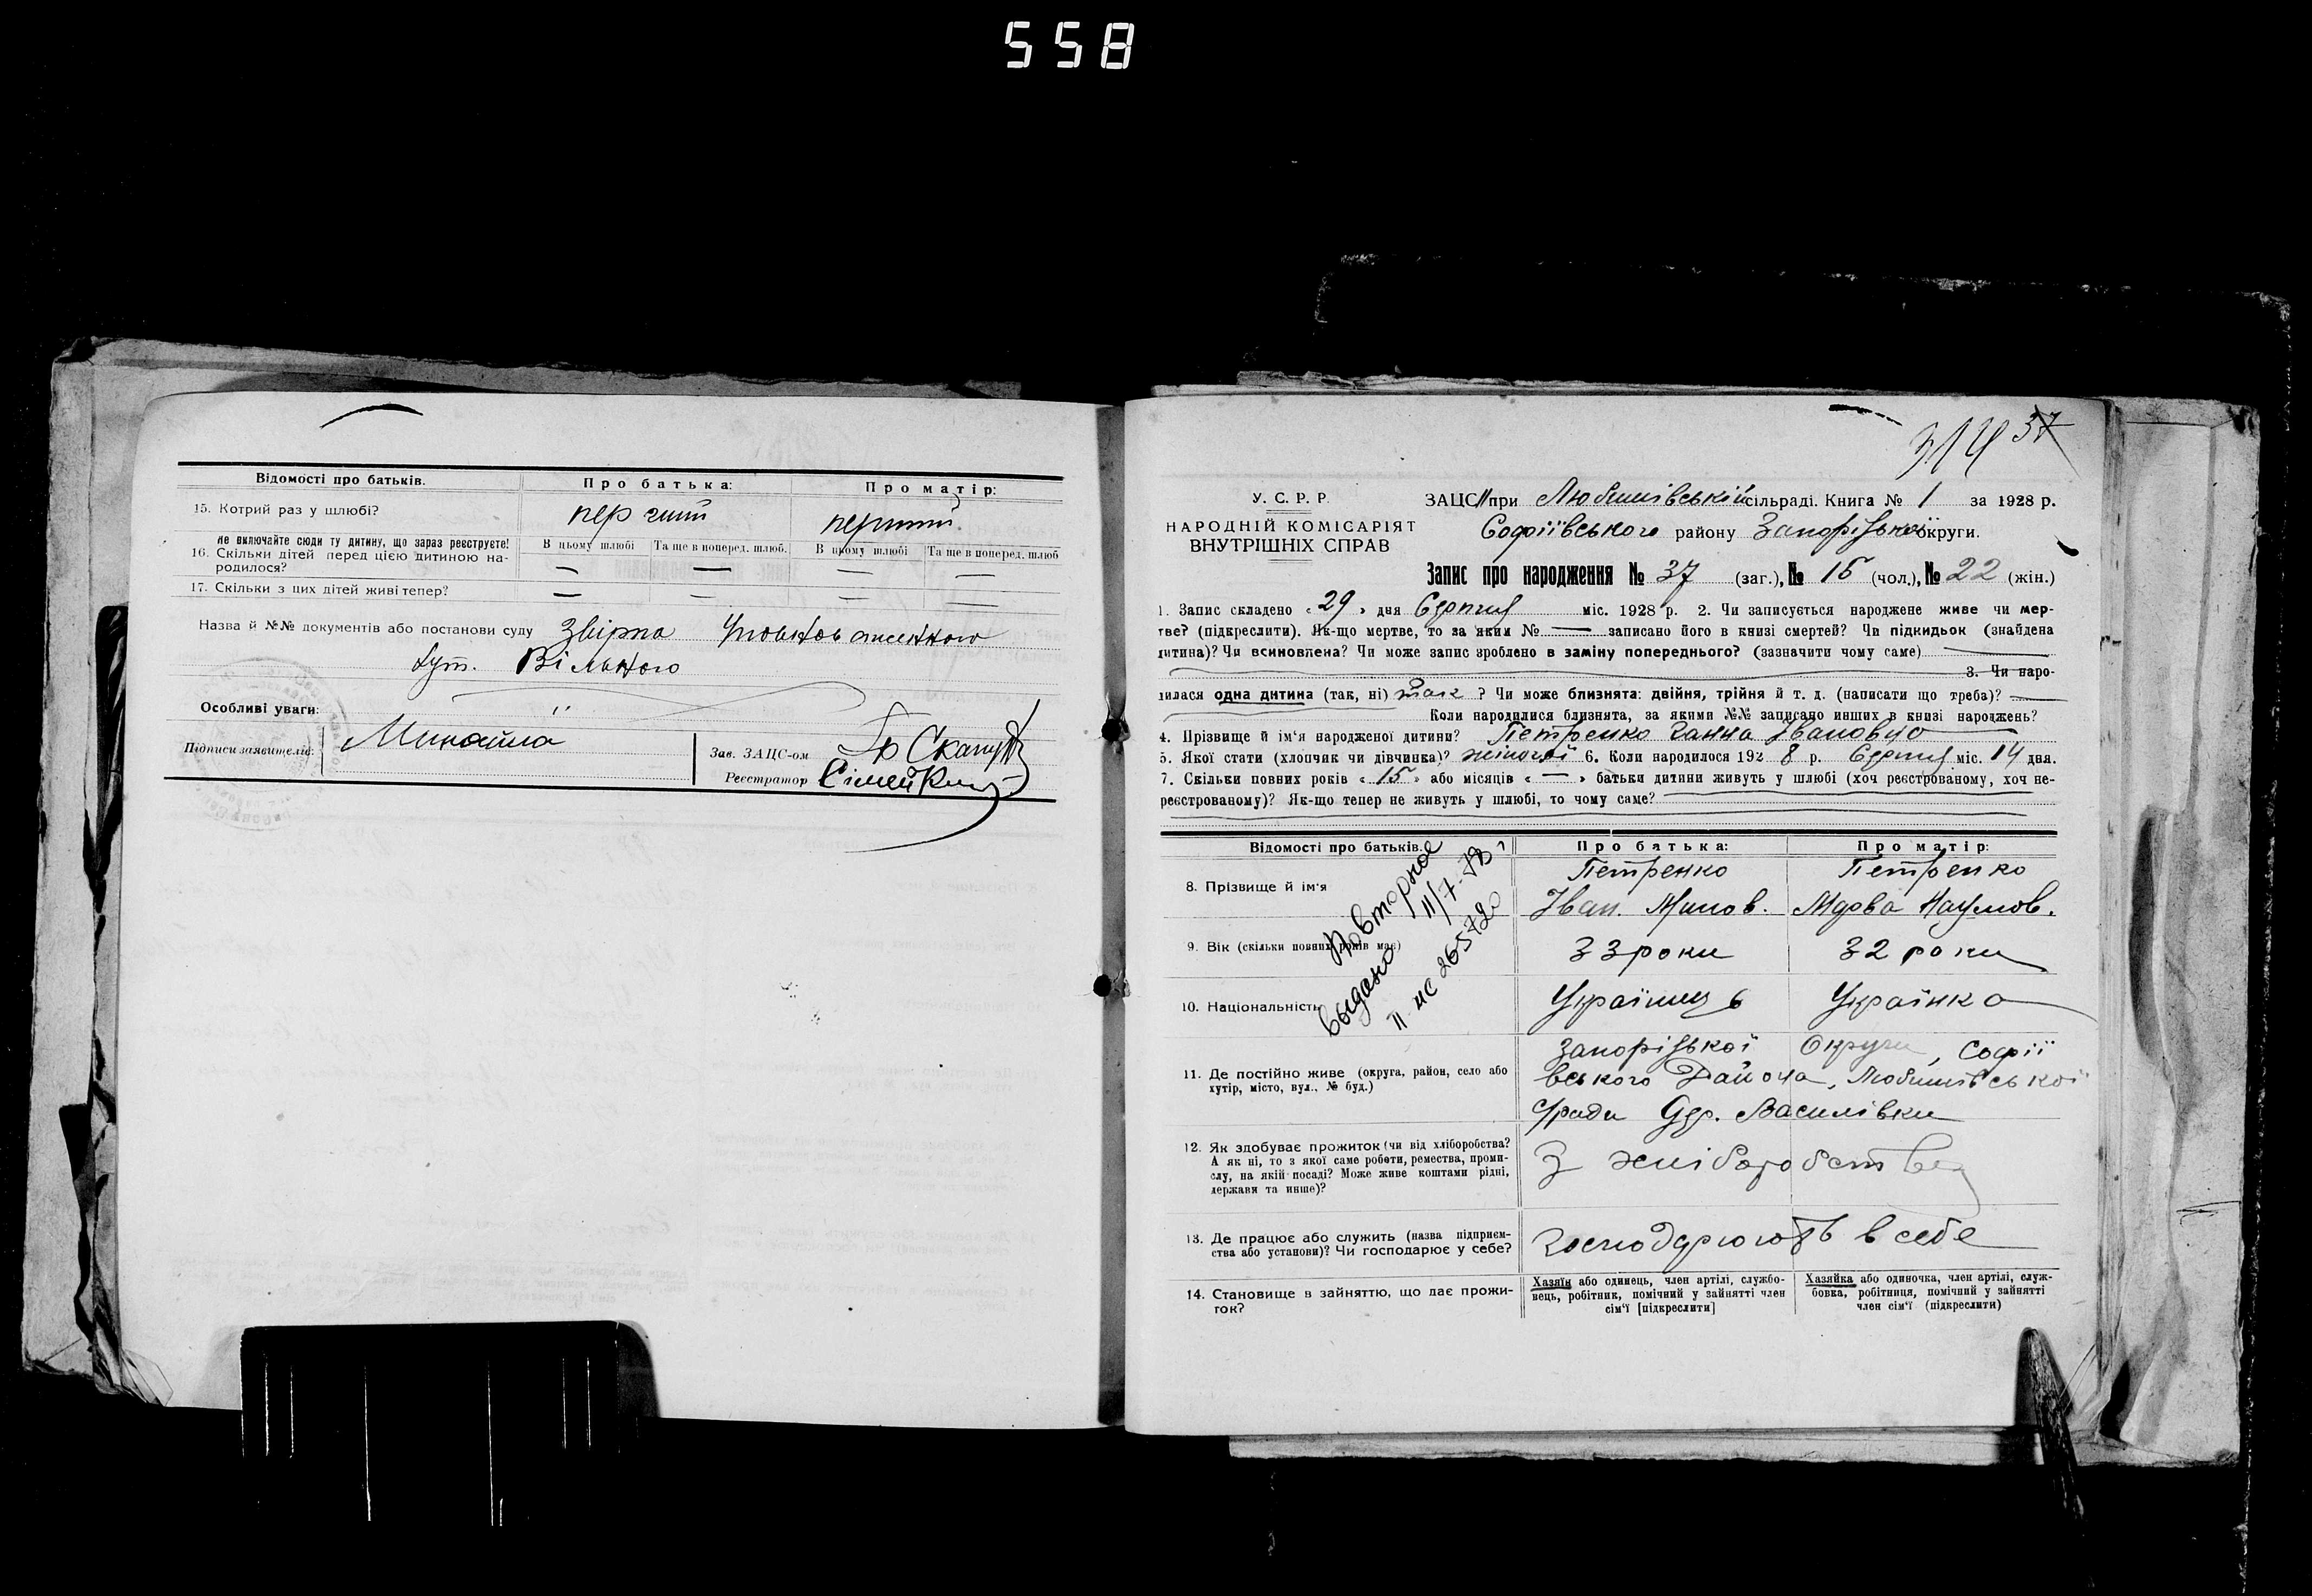 558
Відомості про батьків. Про батька: Про матір:
15. Котрий раз у шлюбі? перший перший
Не включайте сюди ту дитину, що зараз реєструєте! В цьому шлюбі Та ще в поперед. шлюб. В цьому шлюбі Та ще в поперед. шлюб
16. Скільки дітей перед цією дитиною на-
родилося? — — — —
17. Скільки з цих дітей живі тепер? — — — —
Назва й №№ документів або постанови суду Звірка
хут. Вільного
Особливі уваги:
Підписи заявителів: Зав. ЗАЦС-ом
Реєстратор
314 37
У. С. Р. Р.
НАРОДНІЙ КОМІСАРІЯТ
ВНУТРІШНІХ СПРАВ
ЗАЦС при Любимівській сільраді. Книга № 1 за 1928 р.
Софіївського району Запорізької округи.
Запис про народження № 37 (заг.), № 15 (чол.), № 22 (жін.)
1. Запис складено «29» дня Серпня міс. 1928 р. 2. Чи записується народжене живе чи мер-
тве? (підкреслити). Як-що мертве, то за яким № — записано його в книзі смертей? Чи підкидьок (знайдена
дитина)? Чи всиновлена? Чи може запис зроблено в заміну попереднього? (зазначити чому саме)
3. Чи наро-
дилася одна дитина (так, ні) так ? Чи може близнята: двійня, трійня й т. д. (написати що треба)?
Коли народилися близнята, за якими №№ записано инших в книзі народжень?
4. Прізвище й ім'я народженої дитини? Петренко Ганна Івановна
5. Якої стати (хлопчяк чи дівчинка)? жіночої 6. Коли народилося 1928 р. Серпня міс. 14 дня.
7. Скільки повних років «15» або місяців «—» батьки дитини живуть у шлюбі (хоч реєстрованому, хоч не-
реєстрованому)? Як-що тепер не живуть у шлюбі, то чому саме?
Відомості про батьків. Про батька: Про матір:
8. Прізвище й ім'я Петренко Петренко
Іван. Минов. Мдова Наумов.
Повторное
выдано 11/7-78
9. Вік (скільки повних років має) 33 роки 32 роки
II ис 265720
10. Національність Українець Українка
11. Де постійно живе (округа, район, село або
хутір, місто, вул., № буд.)
Запорізької Округи, Софії
вського Района, Любимівської
с/ради Дер. Василівки
12. Як здобуває прожиток (чи від хліборобства?
А як ні, то з якої саме роботи, ремества, проми-
слу, на якій посаді? Може живе коштами рідні,
держави та инше)?
З хліборобства
13. Де працює або служить (назва підприєм-
ства або установи)? Чи господарює у себе?
господарюють в себе
14. Становище в зайняттю, що дає прожи-
ток?
Хазяїн або одинець, член артілі, службо-
вець, робітник, помічний у зайнятті член
сім'ї [підкреслити]
Хазяйка або одиночка, член артілі, служ-
бовка, робітниця, помічний у зайнятті
член сім'ї (підкреслити)